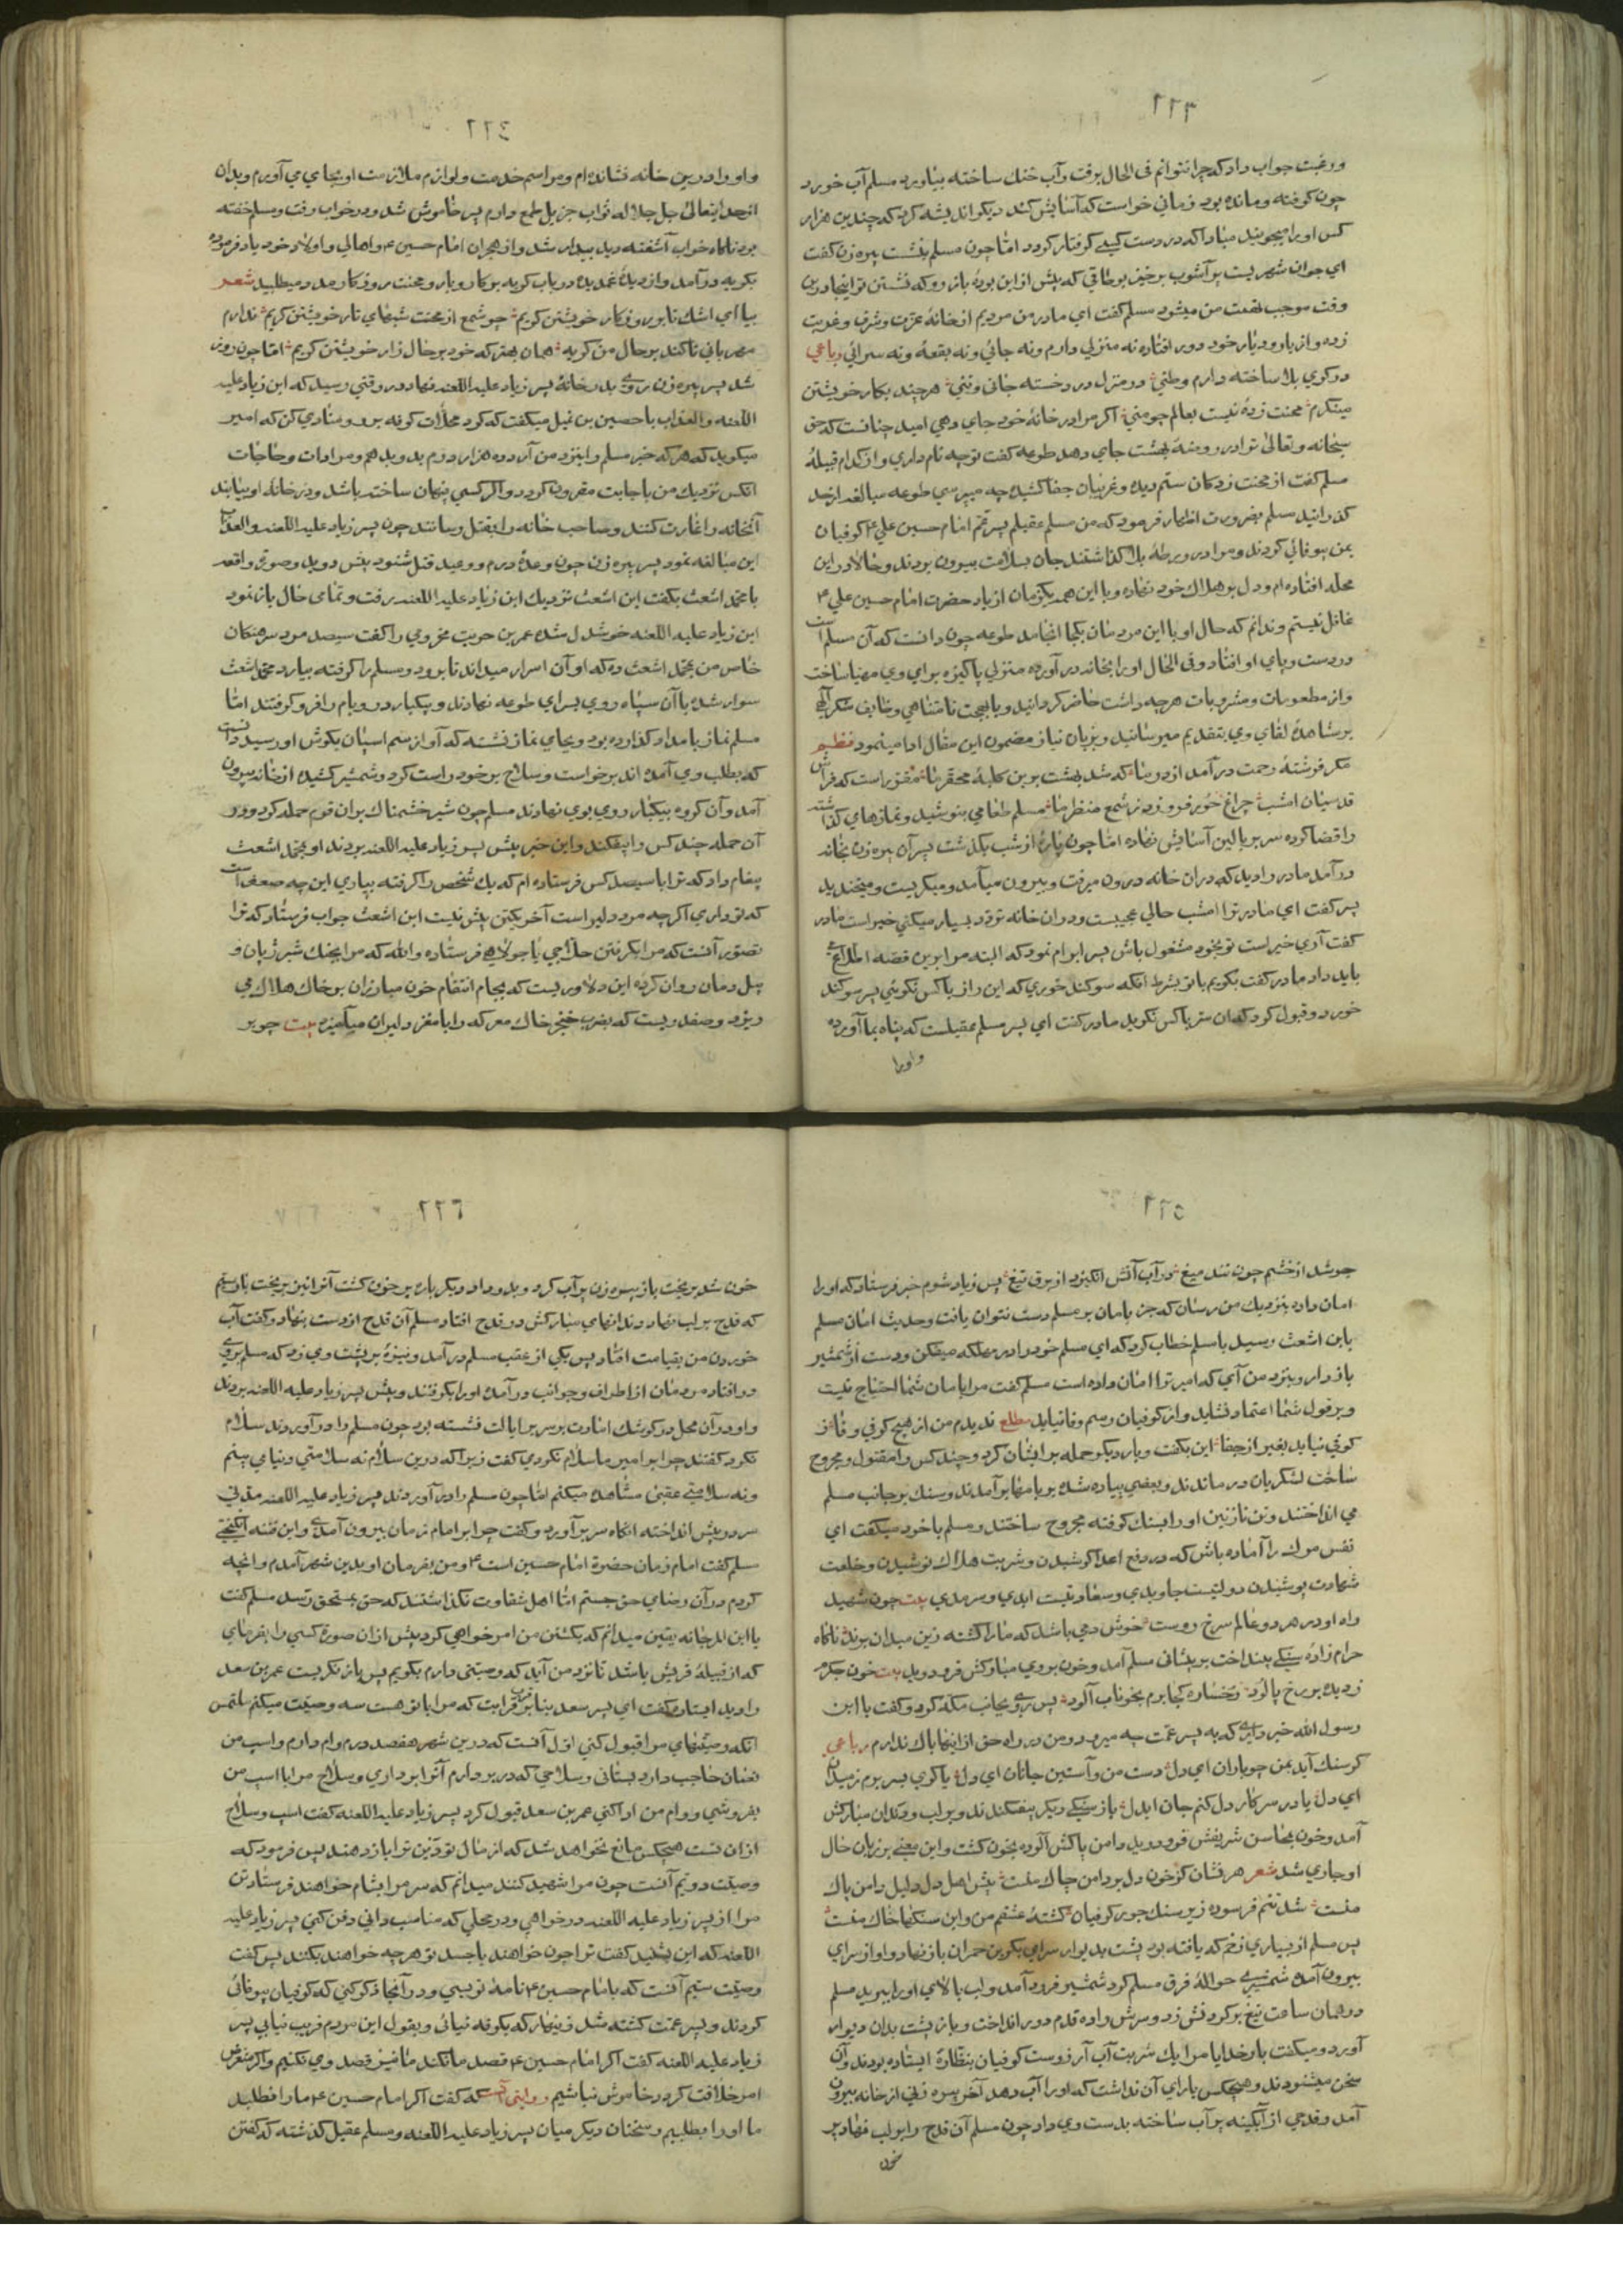 ورغبت جواب داد که چرا نتوانم فی الحال برفت وآب خنك ساخته بیاورد مسلم آب خورد
چون کوفته ومانده بود زمانی خواست که آسایش کند دیکر اندیشه کرد که چندین هزار
کس اورا میجویند مبادا که در دست کسی کرفتار کردد امّا چون مسلم بنشست پیره زن کفت
ای جوان شهریست پر آشوب برخیز بوطاقی که پیش ازین بودهٔ باز رو که نشستن تو اینجا درین
وقت موجب تهمت من میشود مسلم کفت ای مادر من مردیم از خانهٔ عزت وشرف وغربت
زده واز یار ودیار خود دور افتاده نه منزلی دارم ونه جائی ونه بقعهٔ ونه سرائی رباعی
در کوی بلا ساخته دارم وطنی در منزل درد خسته جانی وتنی هر چند بکار خویشتن
مینکرم محنت زدهٔ نیست بعالم چو منی اکر مرا در خانهٔ خود جای دهی امید چنانست که حق
سبحانه وتعالی ترا در روضهٔ بهشت جای دهد طوعه کفت تو چه نام داری واز کدام قبیلهٔ
مسلم کفت از محنت زدکان ستم دیده وغریبان جفا کشیده چه میپرسی طوعه مبالغه از حد
کذرانید مسلم بضرورت اظهار فرمود که من مسلم عقیلم پسر عم امام حسین علی ۴ کوفیان
بمن بیوفائی کردند ومرا در ورطهٔ بلا کذاشتند جان بسلامت بیرون بردند وحالا در این
محله افتاده ام ودل بر هلاك خود نهاده وبا این همه یکزمان از یاد حضرت امام حسین علی ۴
غافل نیستم وندانم که حال او با این مردمان بکجا انجامد طوعه چون دانست که آن مسلم است
در دست وپای او افتاد وفی الحال اورا بخانه در آورده منزلی پاکیزه برای وی مهیا ساخت
واز مطعومات ومشروبات هر چه داشت حاضر کردانید وبابهجت نامتناهی وظایف شکر الهی
بر مشاهدهٔ لقای وی بتقدیم میرسانید وبزبان نیاز مضمون این مقال ادا مینمود نظیم
مکر فرشتهٔ رحمت در آمد از در ما که شد بهشت برین کلبهٔ محقر ما مقرر است که فراش
قدسیان امشب چراغ خور فروزد ز شمع منظر ما مسلم طعامی بنوشید ونمازهای کذاشته
را قضا کرده سر ببالین آسایش نهاده امّا چون پارهٔ از شب بکذشت پسر آن پیره زن بخانه
در آمد مادر را دید که در ان خانه درون میرفت وبیرون میآمد ومیکریست ومیخندید
پسر کفت ای مادر ترا امشب حالی عجیبست ودر ان خانه تردد بسیار میکنی خیر است مادر
کفت آری خیر است تو بخود مشغول باش پسر ابرام نمود که البته مرا برین قصه اطلاعی
باید داد مادر کفت بکویم با تو بشرط انکه سوکند خوری که این راز با کس نکوئی پسر سوکند
خورد وقبول کرد که ان سر با کس نکوید مادر کفت ای پسر مسلم عقیلست که پناه بما آورده
واورا
واورا درین خانه نشانده ام ومراسم خدمت ولوازم ملازمت او بجای می آورم وبدان
از خداینعالی جل جلاله ثواب جزیل طمع دارم پس خاموش شد ودر خواب رفت ومسلم خفته
بود ناکاه خواب آشفته دید بیدار شد واز هجران امام حسین ۴ واهالی واولاد خود یاد فرموده
بکریه در آمد واز دیدهٔ غمدیده در باب کریه بر کار وبار ومحنت روزکار مدد میطلبید شعر
بیا ای اشك تا بر روزکار خویشتن کریم چو شمع از محنت شبهای تار خویشتن کریم ندارم
مهربانی تا کند بر حال من کریه همان بهتر که خود بر حال زار خویشتن کریم امّا چون روز
شد پسر پیره زن روی بدرخانهٔ پسر زیاد علیه اللعنه نهاد در وقتی رسید که ابن زیاد علیه
اللعنه والعذاب با حصین بن نمیل میکفت که کرد محلات کوفه برو ومنادی کن که امیر
میکوید که هر که خبر مسلم را بنزد من آرد ده هزار درم بدو بدهم ومرادات وحاجات
انکس نزدیك من باجابت مقرون کردد واکر کسی پنهان ساخته باشد ودر خانهٔ او بیابند
آنخانه را غارت کنند وصاحب خانه را بقتل رسانند چون پسر زیاد علیه اللعنه والعذاب
این مبالغه نمود پسر پیره زن چون وعدهٔ درم ووعید قتل شنود پیش دوید وصورت واقعه
با محمد اشعث بکفت ابن اشعث نزدیك ابن زیاد علیه اللعنه رفت وتمامی حال باز نمود
ابن زیاد علیه اللعنه خوشدل شده عمر بن حریث مخزومی را کفت سیصد مرد سرهنکان
خاص من بمحمد اشعث ده که او آن اسرار میداند تا برود ومسلم را کرفته بیارد محمد اشعث
سوار شده با آن سپاه روی بسرای طوعه نهادند وبیکبار در وبام را فرو کرفتند امّا
مسلم نماز بامداد کذارده بود وبجای نماز نشسته که آواز سم اسپان بکوش او رسید دانست
که بطلب وی آمده اند برخواست وسلاح بر خود راست کرد وشمشیر کشیده از خانه بیرون
آمد وآن کروه بیکبار روی بوی نهادند مسلم چون شیر خشمناك بران قوم حمله کرد ودر
آن حمله چند کس را بیفکند واین خبر پیش پسر زیاد علیه اللعنه بردند او بمحمد اشعث
پیغام داد که ترا با سیصد کس فرستاده ام که یك شخص را کرفته بیاری این چه ضعف است
که تو داری اکر چه مرد دلیر است آخر یکتن بیش نیست ابن اشعث جواب فرستاد که ترا
تصور آنست که مرا بکرفتن حلاجی یا جولاهی فرستاده والله که مرا بجنك شیر ژیان و
پیل دمان روان کرده این دلاوریست که بجام انتقام خون مبارزان بر خاك هلاك می
ریزد وصفدریست که بضرب خنجر خاك معرکه را با مغز دلیران میآمیزد بیت چو بر
جوشد از خشم چون تند میغ در آب آتش انکیزد از برق تیغ پس زیاد شوم خبر فرستاد که اورا
امان داده بنزدیك من رسان که جز بامان بر مسلم دست نتوان یافت وحدیث امان مسلم
بابن اشعث رسید با مسلم خطاب کرد که ای مسلم خود را در مهلکه میفکن ودست از شمشیر
باز دار وبنزد من آی که امیر ترا امان داده است مسلم کفت مرا بامان شما احتیاج نیست
وبر قول شما اعتماد نشاید واز کوفیان رسم وفا نیاید مطلع ندیدم من از هیچ کوفی وفا ز
کوفی نیاید بغیر از جفا این بکفت وبار دیکر حمله بر ایشان کرد وچند کس را مقتول ومجروح
ساخت لشکریان در ماندند وبعضی پیاده شده بر بامها بر آمدند وسنك بر جانب مسلم
می انداختند وتن نازنین اورا بسنك کوفته مجروح ساختند ومسلم با خود میکفت ای
نفس مرك را آماده باش که در دفع اعدا کوشیدن وشربت هلاك نوشیدن وخلعت
شهادت پوشیدن دولتیست جاویدی وسعادتیست ابدی وسرمدی بیت چون شهید
راه او در هر دو عالم سرخ روست خوش دمی باشد که مارا کشته زین میدان برند ناکاه
حرامزادهٔ سنکی بینداخت بر پیشانی مسلم آمد وخون بروی مبارکش فرو دوید بیت خون جکرم
ز دیده بر رخ پالود رخساره کجا برم بخوناب آلود پس روی بجانب مکه کرد وکفت یا ابن
رسول الله خبر داری که به پسر عمت چه میرود ومن در راه حق از اینها باك ندارم رباعی
کر سنك آید بمن چو باران ای دل دست من وآستین جانان ای دل یا کوی بسر برم ز میدان
ای دل یا در سر کار دل کنم جان ایدل باز سنکی دیکر بیفکندند وبر لب ودندان مبارکش
آمد وخون بمحاسن شریفش فرو دوید ودامن پاکش آلوده بخون کشت واین معنی بر زبان حال
او جاری شد شعر هر نشان کز خون دل بر دامن چاك منست پیش اهل دل دلیل دامن پاك
منست شد تنم فرسوده زیر سنك جور کوفیان کشتهٔ عشقم من واین سنکها خاك منست
پس مسلم از بسیاری زخم که یافته بود پشت بدیوار سرای بکر بن حمران باز نهاد واو از سرای
بیرون آمده شمشیری حوالهٔ فرق مسلم کرد شمشیر فرود آمد ولب بالای اورا ببرید مسلم
در همان ساعت تیغ بر کردنش زد وسرش را ده قدم دور انداخت وباز پشت بدان دیوار
آورد ومیکفت بار خدایا مرا یك شربت آب آرزوست کوفیان بنظارهٔ ایستاده بودند وآن
سخن میشنودند وهیچکس یارای آن نداشت که اورا آب دهد آخر پیره زنی از خانه بیرون
آمد وقدحی از آبکینه پر آب ساخته بدست وی داد چون مسلم آن قدح را بر لب نهاد پر
خون
خون شد بریخت باز پیره زن پر آب کرد وبدو داد دیکر باره پر خون کشت آنرا نیز بریخت بار سیم
که قدح بر لب نهاد دندانهای مبارکش در قدح افتاد مسلم آن قدح از دست بنهاد وکفت آب
خوردن من بقیامت افتاد پس یکی از عقب مسلم در آمد ونیزهٔ بر پشت وی زد که مسلم بروی
در افتاد مردمان از اطراف وجوانب در آمده اورا بکرفتند وپیش پسر زیاد علیه اللعنه بردند
واو در آن محل در کوشك امارت بر سریر ایالت نشسته بود چون مسلم را در آوردند سلام
نکرد کفتند چرا بر امیر ما سلام نکردی کفت زیرا که درین سلام نه سلامتی دنیا می بینم
ونه سلامتی عقبی مشاهده میکنم امّا چون مسلم را در آوردند پسر زیاد علیه اللعنه مدتی
سر در پیش انداخته انکاه سر بر آورد وکفت چرا بر امام زمان بیرون آمدی واین فتنه انکیختی
مسلم کفت امام زمان حضرة امام حسین است ۴ ومن بفرمان او بدین شهر آمدم وانچه
کردم در آن رضای حق جستم امّا اهل شقاوت نکذاشتند که حق بمستحق رسد مسلم کفت
یا ابن المرجانه یقین میدانم که بکشتن من امر خواهی کرد پیش از ان صورة کسی را بفرمای
که از قبیلهٔ قریش باشد تا نزد من آید که وصیتی دارم بکویم پس باز نکریست عمر بن سعد
را دید ایستاده کفت ای پسر سعد بنابر قرابت که مرا با تو هست سه وصیت میکنم ملتمس
انکه وصیتهای مرا قبول کنی اول آنست که درین شهر هفصد درم وام دارم واسب من
نعمان حاجب دارد بستانی وسلاحی که در بر دارم آنرا برداری وسلاح مرا با اسب من
بفروشی ووام من ادا کنی عمر بن سعد قبول کرد پسر زیاد علیه اللعنه کفت اسب وسلاح
ازان تست هیچکس مانع نخواهد شد که از مال تو دین ترا باز دهند پس فرمود که
وصیت دویم آنست چون مرا شهید کنند میدانم که سر مرا بشام خواهند فرستاد تن
مرا از پسر زیاد علیه اللعنه درخواهی ودر محلی که مناسب دانی دفن کنی پسر زیاد علیه
اللعنه که این بشنید کفت ترا چون خواهند با جسد تو هر چه خواهند بکنند پس کفت
وصیت سیم آنست که بامام حسین ۴ نامهٔ نویسی ودر آنجا ذکر کنی که کوفیان بیوفائی
کردند وپسر عمت کشته شد زینهار که بکوفه نیائی وبقول این مردم فریب نیابی پسر
زیاد علیه اللعنه کفت اکر امام حسین ۴ قصد ما نکند ما نیز قصد وی نکنیم واکر متعرض
امر خلافت کردد خاموش نباشیم روایتی آنست که کفت اکر امام حسین ۴ مارا نطلبد
ما اورا نطلبیم وسخنان دیکر میان پسر زیاد علیه اللعنه ومسلم عقیل کذشته که کفتن